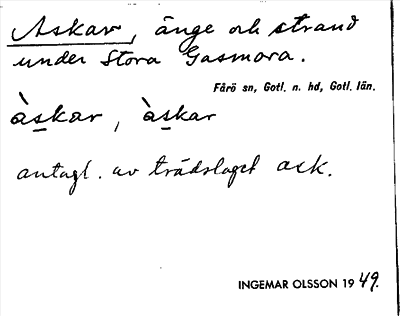 Askar, änge och strand
under Stora Gasmora.
Fårö sn, Gotl. n. hd, Gotl. län.
àskar, àskar
antagl. av trädslaget ask.
INGEMAR OLSSON 1949.